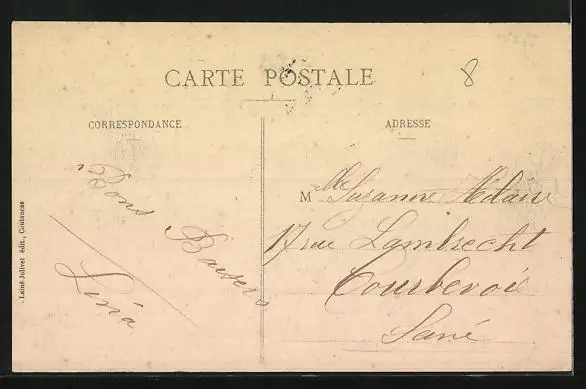 CARTE POSTALE
8
CORRESPONDANCE
Bons Baisers
Léna
ADRESSE
Mlle Suzanne
17 rue Lambrecht
Courbevoie
Lainé-Jolivet édit., Coutances